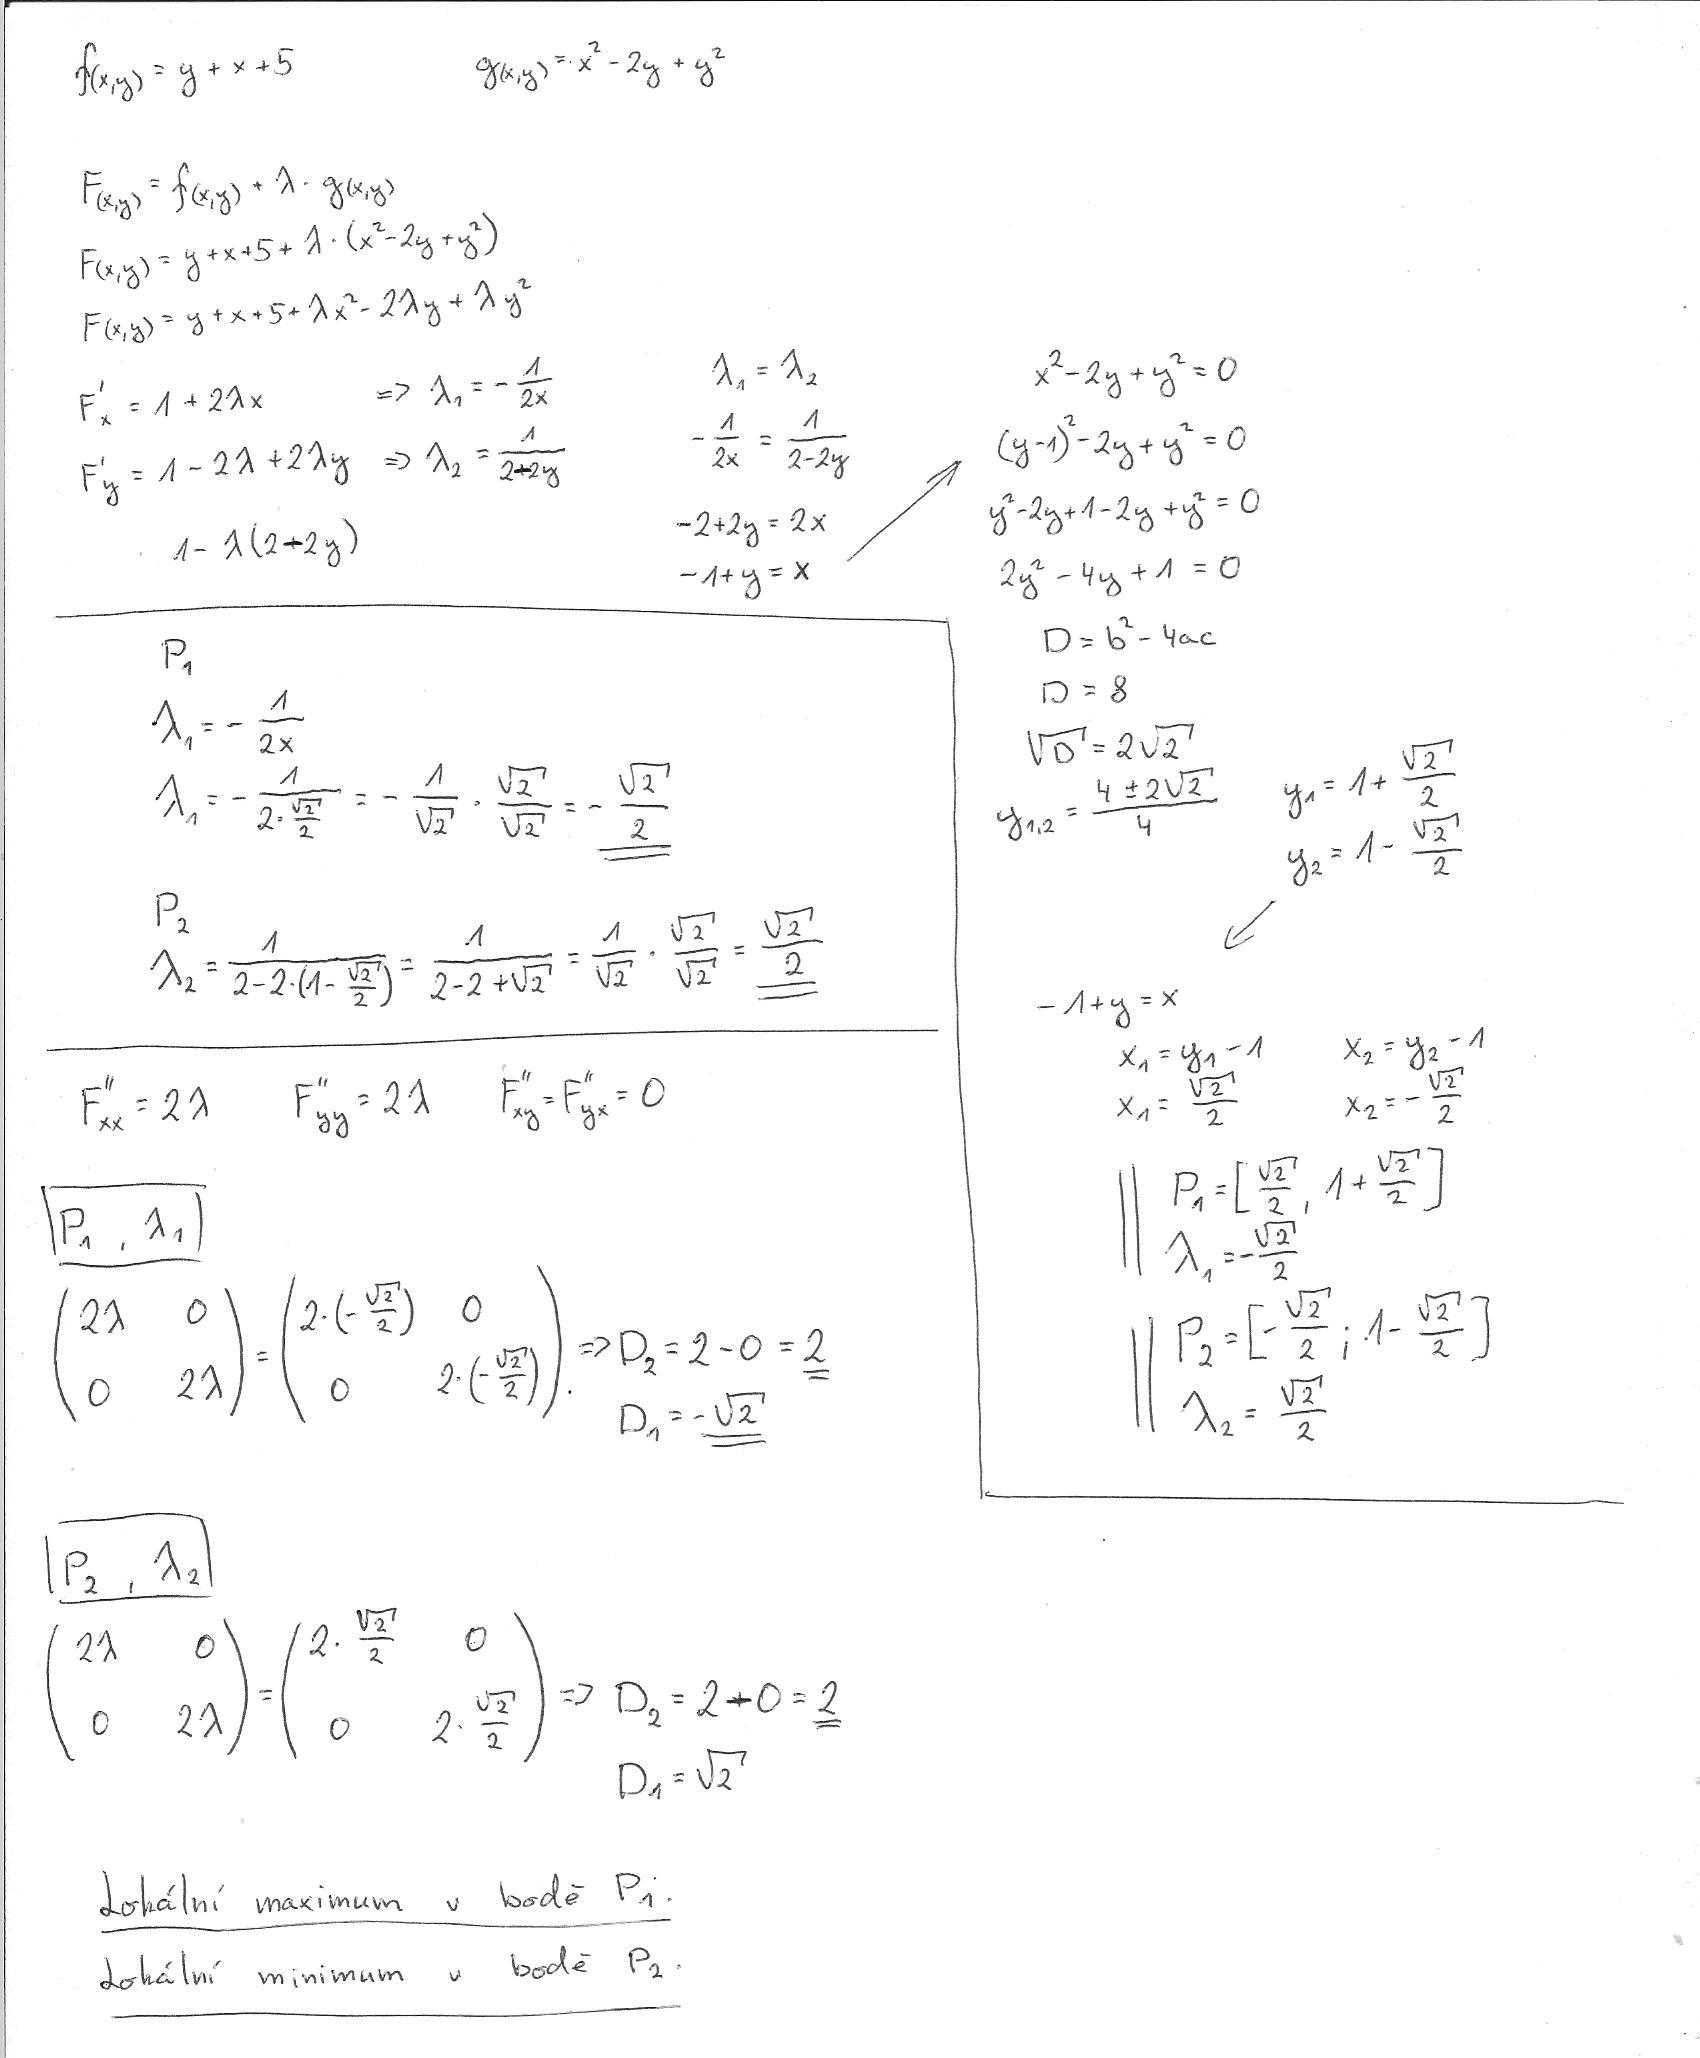 f(x,y) = y + x + 5
g(x,y) = x² - 2y + y²
F(x,y) = f(x,y) + λ · g(x,y)
F(x,y) = y + x + 5 + λ · (x² - 2y + y²)
F(x,y) = y + x + 5 + λx² - 2λy + λy²
F'x = 1 + 2λx => λ₁ = - 1/2x
F'y = 1 - 2λ + 2λy => λ₂ = 1/(2-2y)
1 - λ(2-2y)
λ₁ = λ₂
- 1/2x = 1/(2-2y)
-2 + 2y = 2x
-1 + y = x
x² - 2y + y² = 0
(y-1)² - 2y + y² = 0
y² - 2y + 1 - 2y + y² = 0
2y² - 4y + 1 = 0
D = b² - 4ac
D = 8
√D = 2√2
y₁,₂ = (4 ± 2√2)/4
y₁ = 1 + √2/2
y₂ = 1 - √2/2
-1 + y = x
x₁ = y₁ - 1 x₂ = y₂ - 1
x₁ = √2/2 x₂ = - √2/2
P₁ = [√2/2, 1 + √2/2]
λ₁ = - √2/2
P₂ = [- √2/2 ; 1 - √2/2]
λ₂ = √2/2
P₁
λ₁ = - 1/2x
λ₁ = - 1/(2·√2/2) = - 1/√2 · √2/√2 = - √2/2
P₂
λ₂ = 1/(2-2·(1-√2/2)) = 1/(2-2+√2) = 1/√2 · √2/√2 = √2/2
F''xx = 2λ F''yy = 2λ F''xy = F''yx = 0
P₁, λ₁
(2λ 0) = (2·(-√2/2) 0) => D₂ = 2 - 0 = 2
(0 2λ) (0 2·(-√2/2)) D₁ = -√2
P₂, λ₂
(2λ 0) = (2·√2/2 0) => D₂ = 2 - 0 = 2
(0 2λ) (0 2·√2/2) D₁ = √2
Lokální maximum v bodě P₁.
Lokální minimum v bodě P₂.